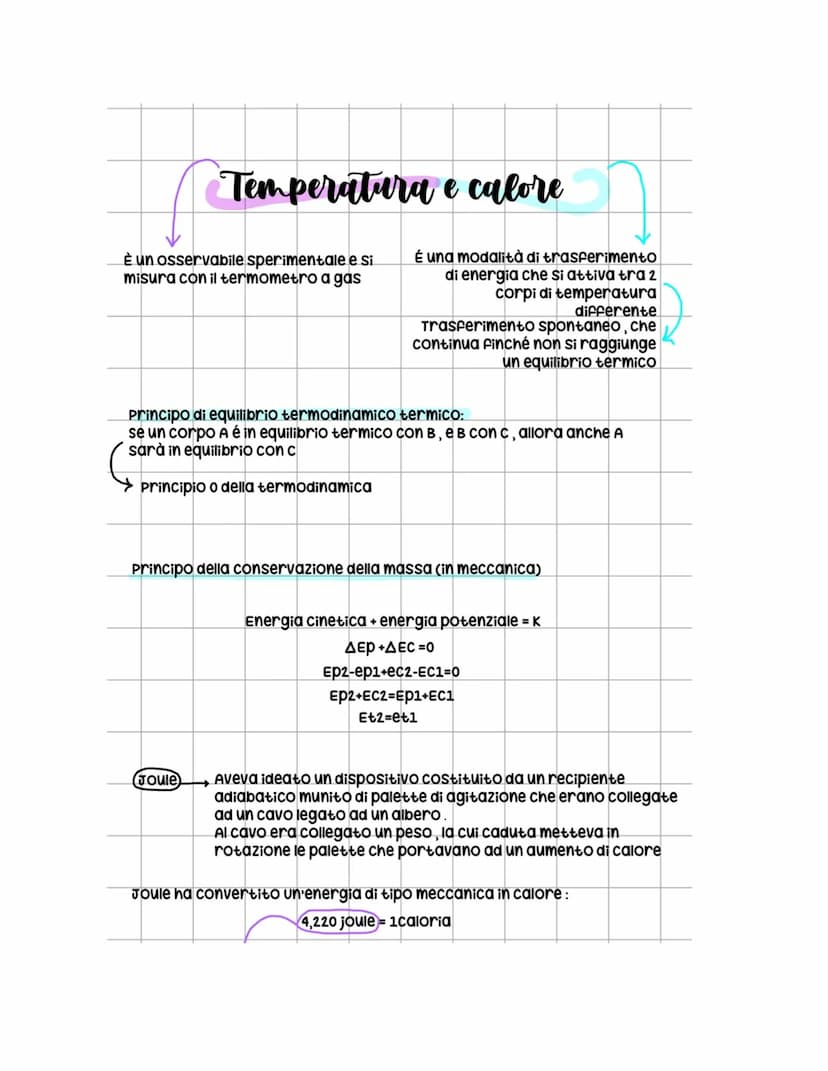 Temperatura e calore
È un osservabile sperimentale e si
misura con il termometro a gas
É una modalità di trasferimento
di energia che si attiva tra 2
corpi di temperatura
differente
Trasferimento spontaneo, che
continua finché non si raggiunge
un equilibrio termico
Principo di equilibrio termodinamico termico:
se un corpo A é in equilibrio termico con B, e B con C, allora anche A
sarà in equilibrio con C
Principio 0 della termodinamica
Principo della conservazione della massa (in meccanica)
Energia cinetica + energia potenziale = K
ΔEp +ΔEC =0
Ep2-ep1+ec2-EC1=0
Ep2+EC2=Ep1+EC1
Et2=et1
Joule
Aveva ideato un dispositivo costituito da un recipiente
adiabatico munito di palette di agitazione che erano collegate
ad un cavo legato ad un albero.
Al cavo era collegato un peso, la cui caduta metteva in
rotazione le palette che portavano ad un aumento di calore
Joule ha convertito un'energia di tipo meccanica in calore:
4,220 joule = 1caloria